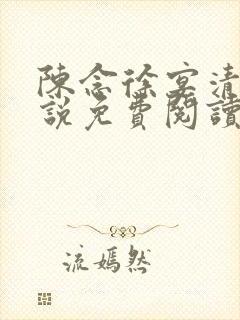 陳念徐宴清
說免費閱讀
流嫣然